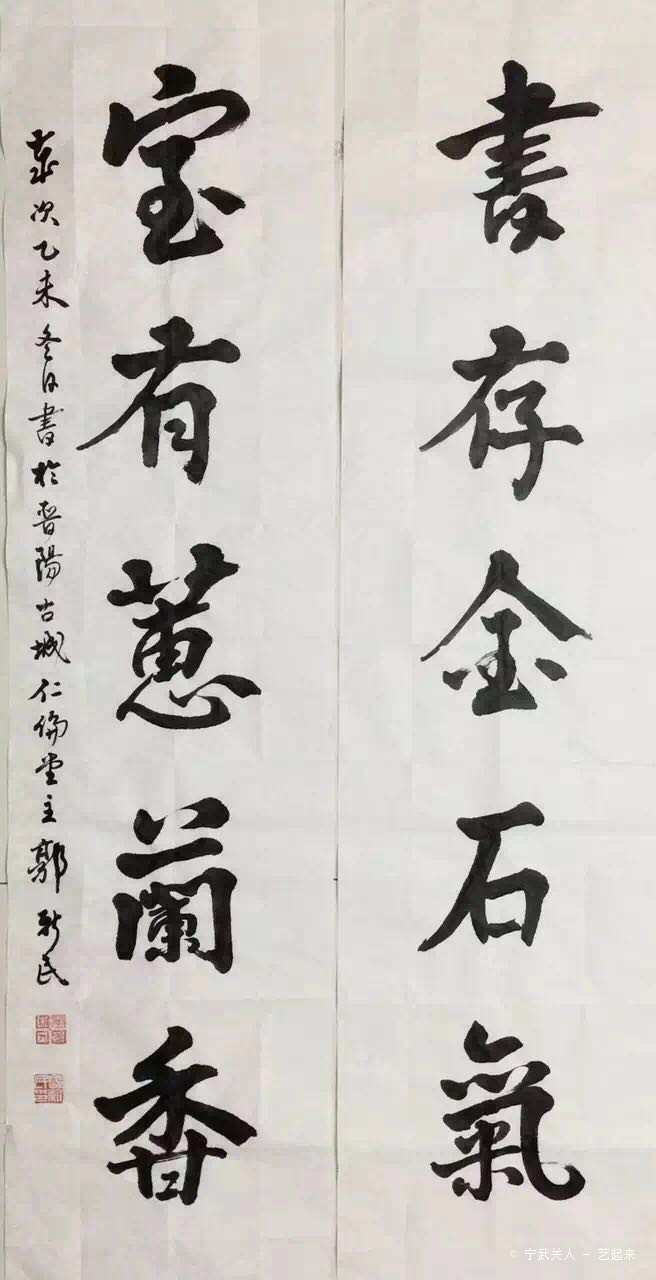 書存金石氣
室有蕙蘭香
歲次乙未冬日書於晉陽古城仁倫堂主郭新民
© 宁武关人 - 艺起来